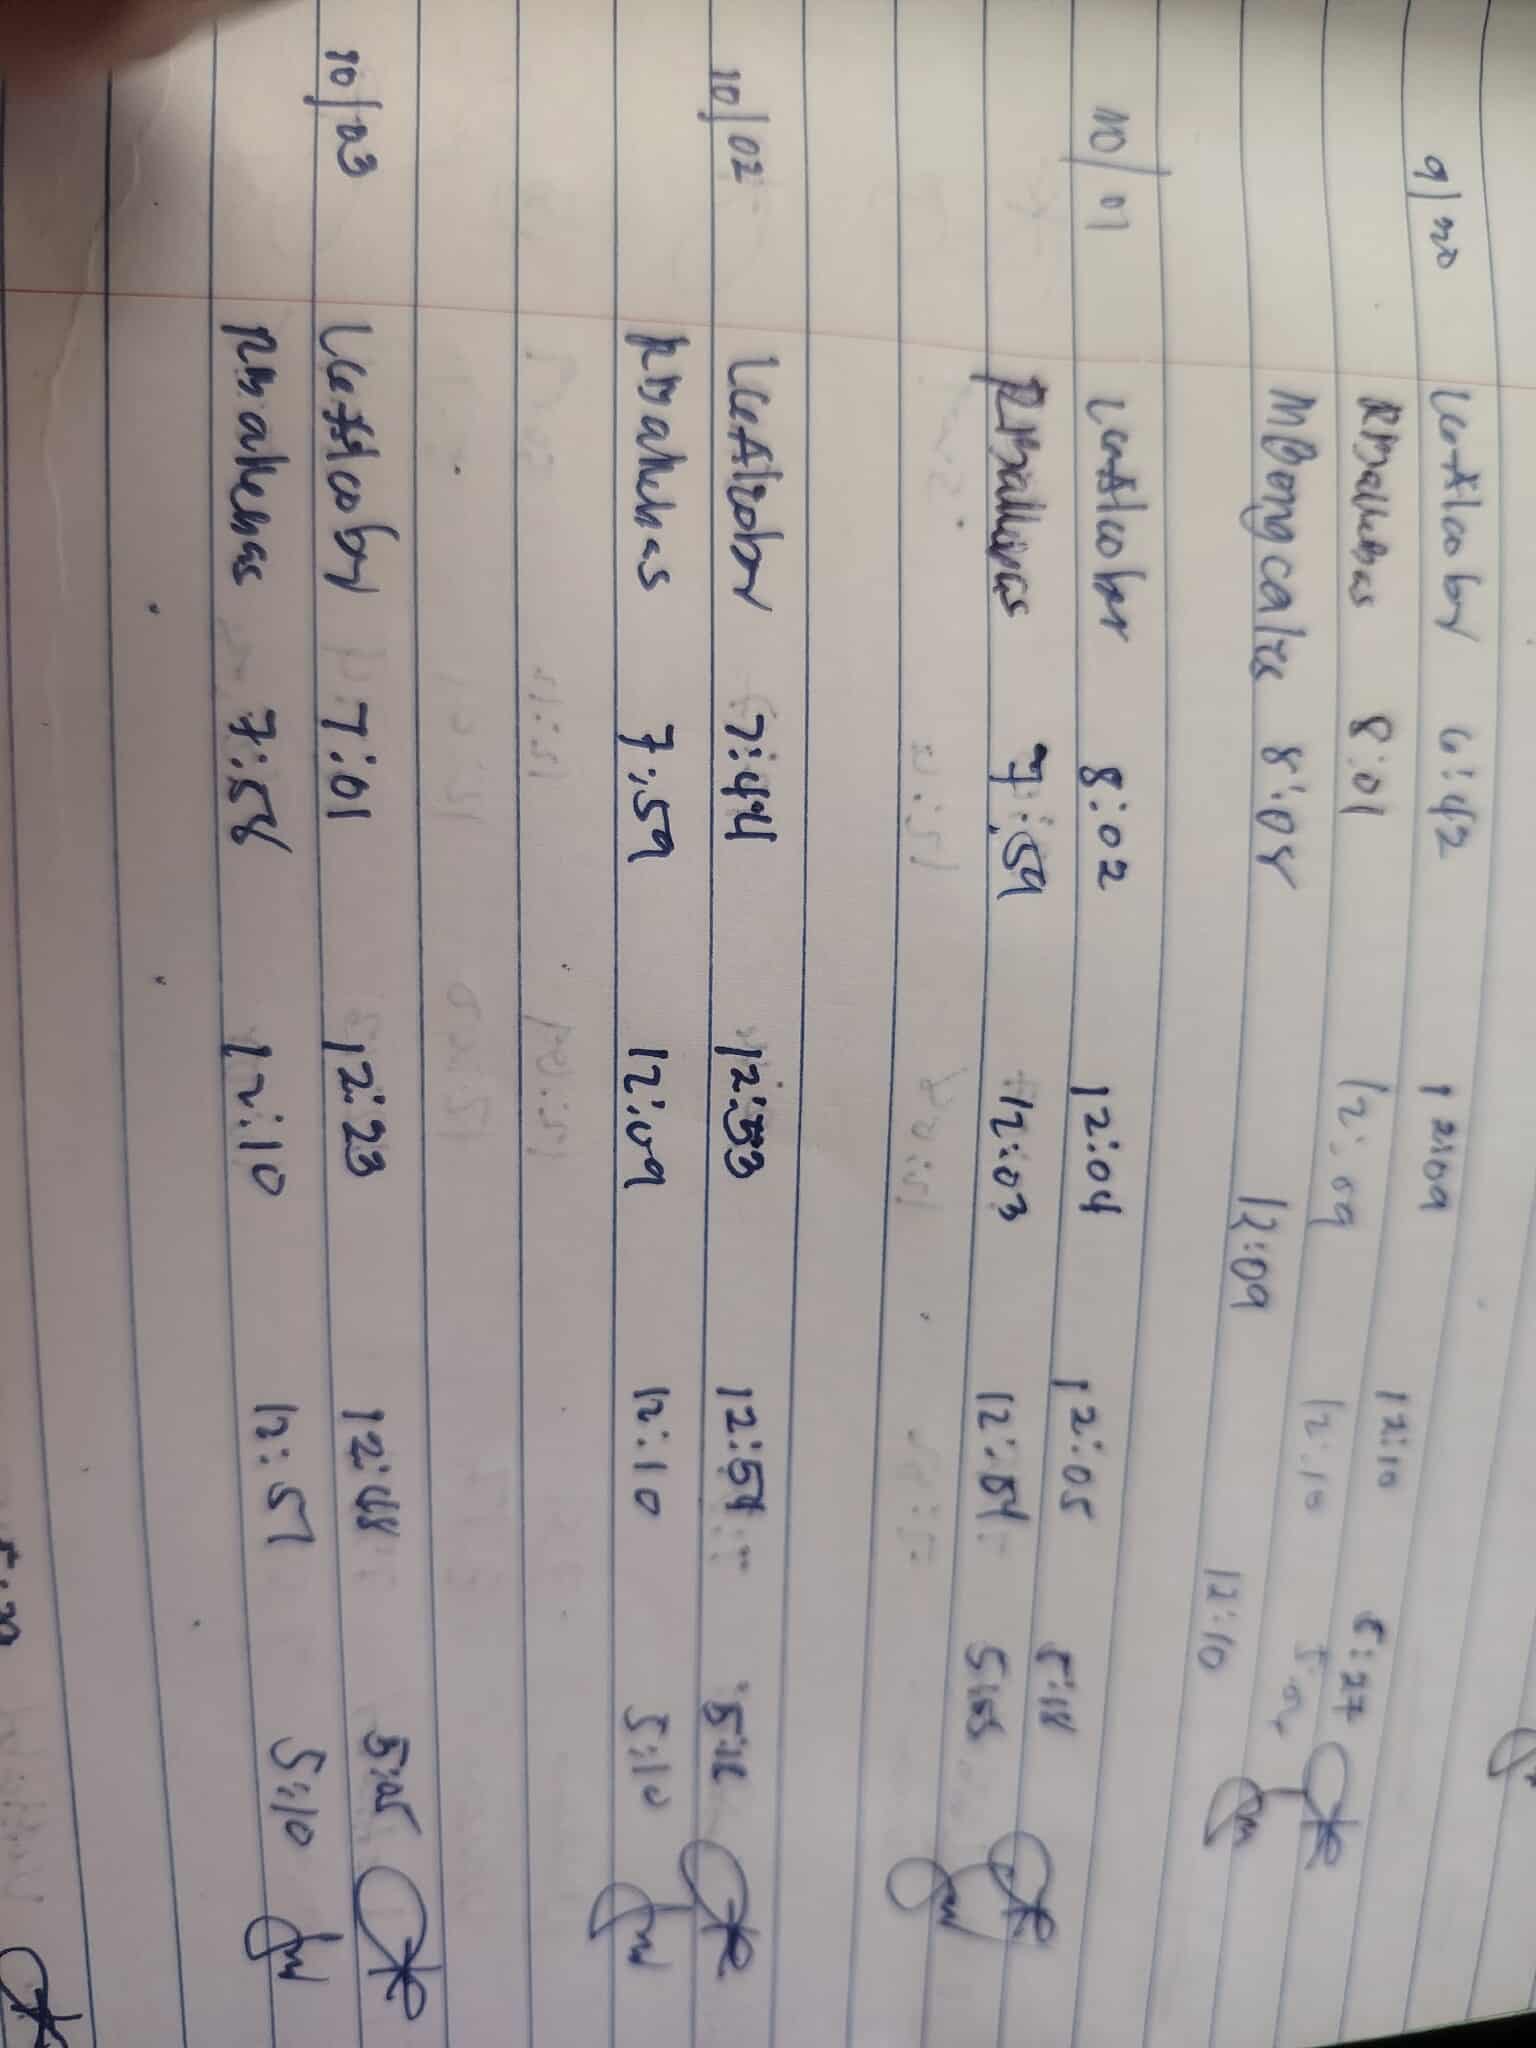 9/30 LGAlcoby 6:42 12:09 12:10 5:27
RMallebas 8:01 12:09 12:10
MBongcales 8:08 12:09 12:10
10/01 LGAlcober 8:02 12:04 12:05 5:18
7:59 12:03 12:04 5:05
10/02 LGAlcober 7:44 12:53 12:54
7:59 12:09 12:10 5:10
10/03 LGAlcoby 7:01 12:23 12:48 5:05
7:58 12:10 12:57 5:10